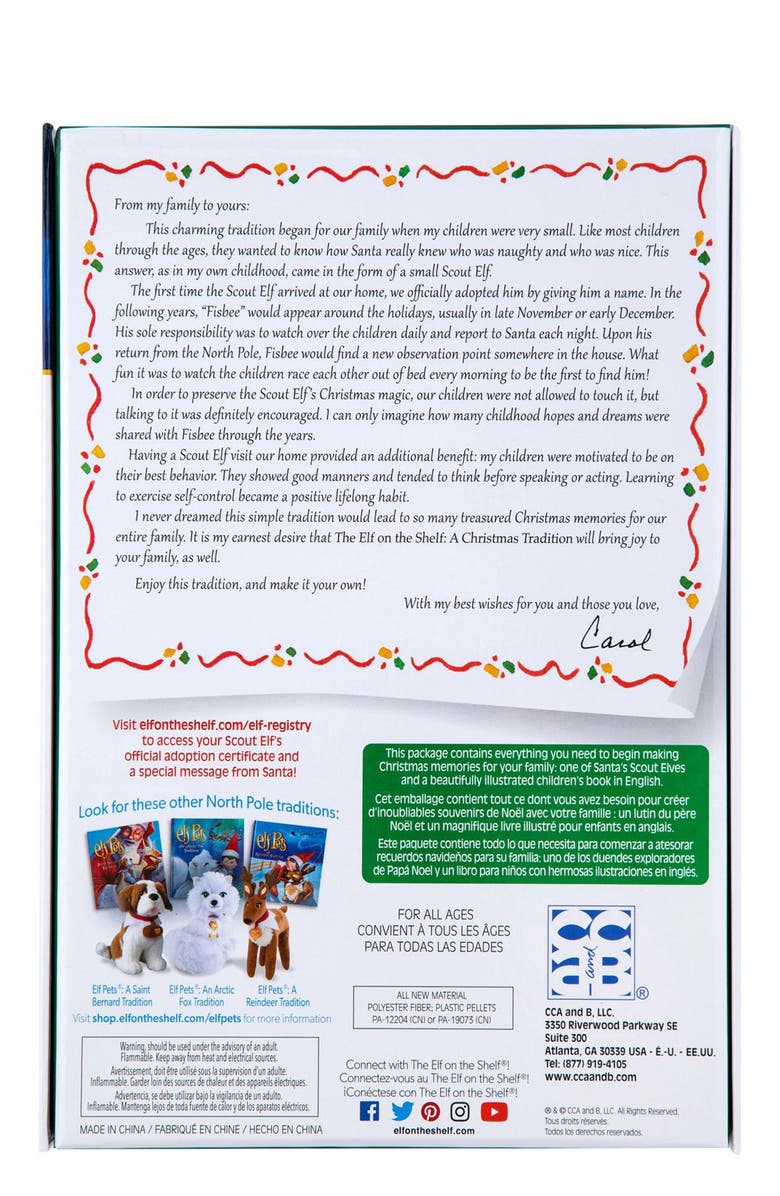 From my family to yours:
This charming tradition began for our family when my children were very small. Like most children
through the ages, they wanted to know how Santa really knew who was naughty and who was nice. This
answer, as in my own childhood, came in the form of a small Scout Elf.
The first time the Scout Elf arrived at our home, we officially adopted him by giving him a name. In the
following years, “Fisbee” would appear around the holidays, usually in late November or early December.
His sole responsibility was to watch over the children daily and report to Santa each night. Upon his
return from the North Pole, Fisbee would find a new observation point somewhere in the house. What
fun it was to watch the children race each other out of bed every morning to be the first to find him!
In order to preserve the Scout Elf’s Christmas magic, our children were not allowed to touch it, but
talking to it was definitely encouraged. I can only imagine how many childhood hopes and dreams were
shared with Fisbee through the years.
Having a Scout Elf visit our home provided an additional benefit: my children were motivated to be on
their best behavior. They showed good manners and tended to think before speaking or acting. Learning
to exercise self-control became a positive lifelong habit.
I never dreamed this simple tradition would lead to so many treasured Christmas memories for our
entire family. It is my earnest desire that The Elf on the Shelf: A Christmas Tradition will bring joy to
your family, as well.
Enjoy this tradition, and make it your own!
With my best wishes for you and those you love,
Carol
Visit elfontheshelf.com/elf-registry
to access your Scout Elf’s
official adoption certificate and
a special message from Santa!
Look for these other North Pole traditions:
elf Pets
elf Pets
elf Pets
Elf Pets®: A Saint
Bernard Tradition
Elf Pets®: An Arctic
Fox Tradition
Elf Pets®: A
Reindeer Tradition
Visit shop.elfontheshelf.com/elfpets for more information
Warning, should be used under the advisory of an adult.
Flammable. Keep away from heat and electrical sources.
Avertissement, doit être utilisé sous la supervision d’un adulte.
Inflammable. Garder loin des sources de chaleur et des appareils électriques.
Advertencia, se debe utilizar bajo la vigilancia de un adulto.
Inflamable. Mantenga lejos de toda fuente de calor y de los aparatos eléctricos.
MADE IN CHINA / FABRIQUÉ EN CHINE / HECHO EN CHINA
This package contains everything you need to begin making
Christmas memories for your family: one of Santa’s Scout Elves
and a beautifully illustrated children’s book in English.
Cet emballage contient tout ce dont vous avez besoin pour créer
d’inoubliables souvenirs de Noël avec votre famille : un lutin du père
Noël et un magnifique livre illustré pour enfants en anglais.
Este paquete contiene todo lo que necesita para comenzar a atesorar
recuerdos navideños para su familia: uno de los duendes exploradores
de Papá Noel y un libro para niños con hermosas ilustraciones en inglés.
FOR ALL AGES
CONVIENT À TOUS LES ÂGES
PARA TODAS LAS EDADES
ALL NEW MATERIAL
POLYESTER FIBER; PLASTIC PELLETS
PA-12204 (CN) or PA-19073 (CN)
Connect with The Elf on the Shelf®!
Connectez-vous au The Elf on the Shelf®!
¡Conéctese con The Elf on the Shelf®!
elfontheshelf.com
and
®
CCA and B, LLC.
3350 Riverwood Parkway SE
Suite 300
Atlanta, GA 30339 USA - É.-U. - EE.UU.
Tel: (877) 919-4105
www.ccaandb.com
® & © CCA and B, LLC. All Rights Reserved.
Tous droits réservés.
Todos los derechos reservados.